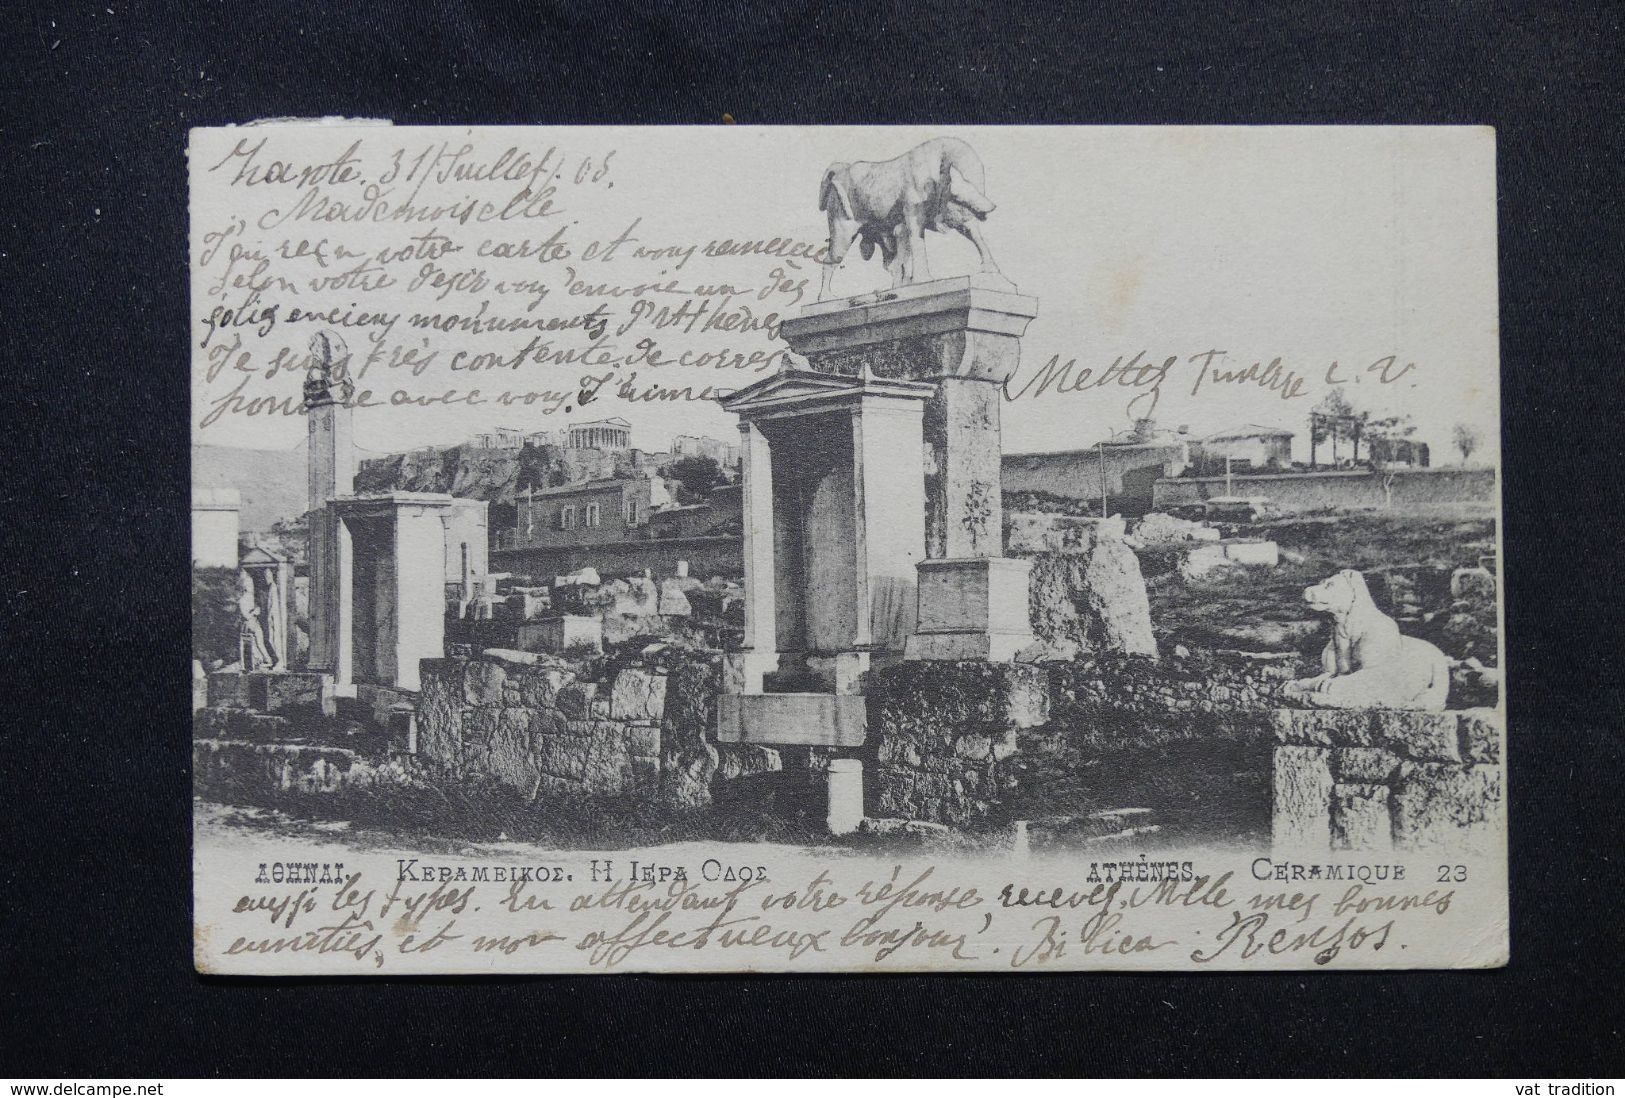 Zante. 31/Juillet/.05.
Mademoiselle
J'ai reçu votre carte et vous remercie.
Selon votre desir vous envoie un dès
jolis enciens monuments d'Athènes
Je suis très contente de corres
pondre avec vous. J'aime
Mettez Timbre c. v.
ΑΘΗΝΑΙ. ΚΕΡΑΜΕΙΚΟΣ. Η ΙΕΡΑ ΟΔΟΣ ATHÈNES. CÉRAMIQUE 23
aussi les types. En attendant votre réponse, recevez, Mlle mes bonnes
amitiès, et mon affectueux bonjour. Bibica Renzos.
vat tradition
www.delcampe.net